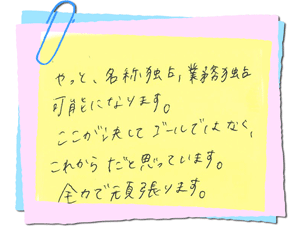 やっと、名称独占,業務独占
可能になります。
ここが決してゴールではなく、
これからだと思っています。
全力で頑張ります。